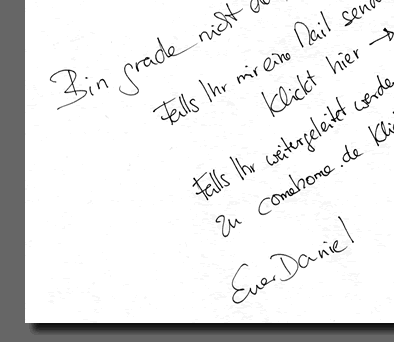 Bin grade nicht
Falls Ihr mir eine Mail
klickt hier →
Falls Ihr weitergeleitet
zu comehome.de
Euer Daniel